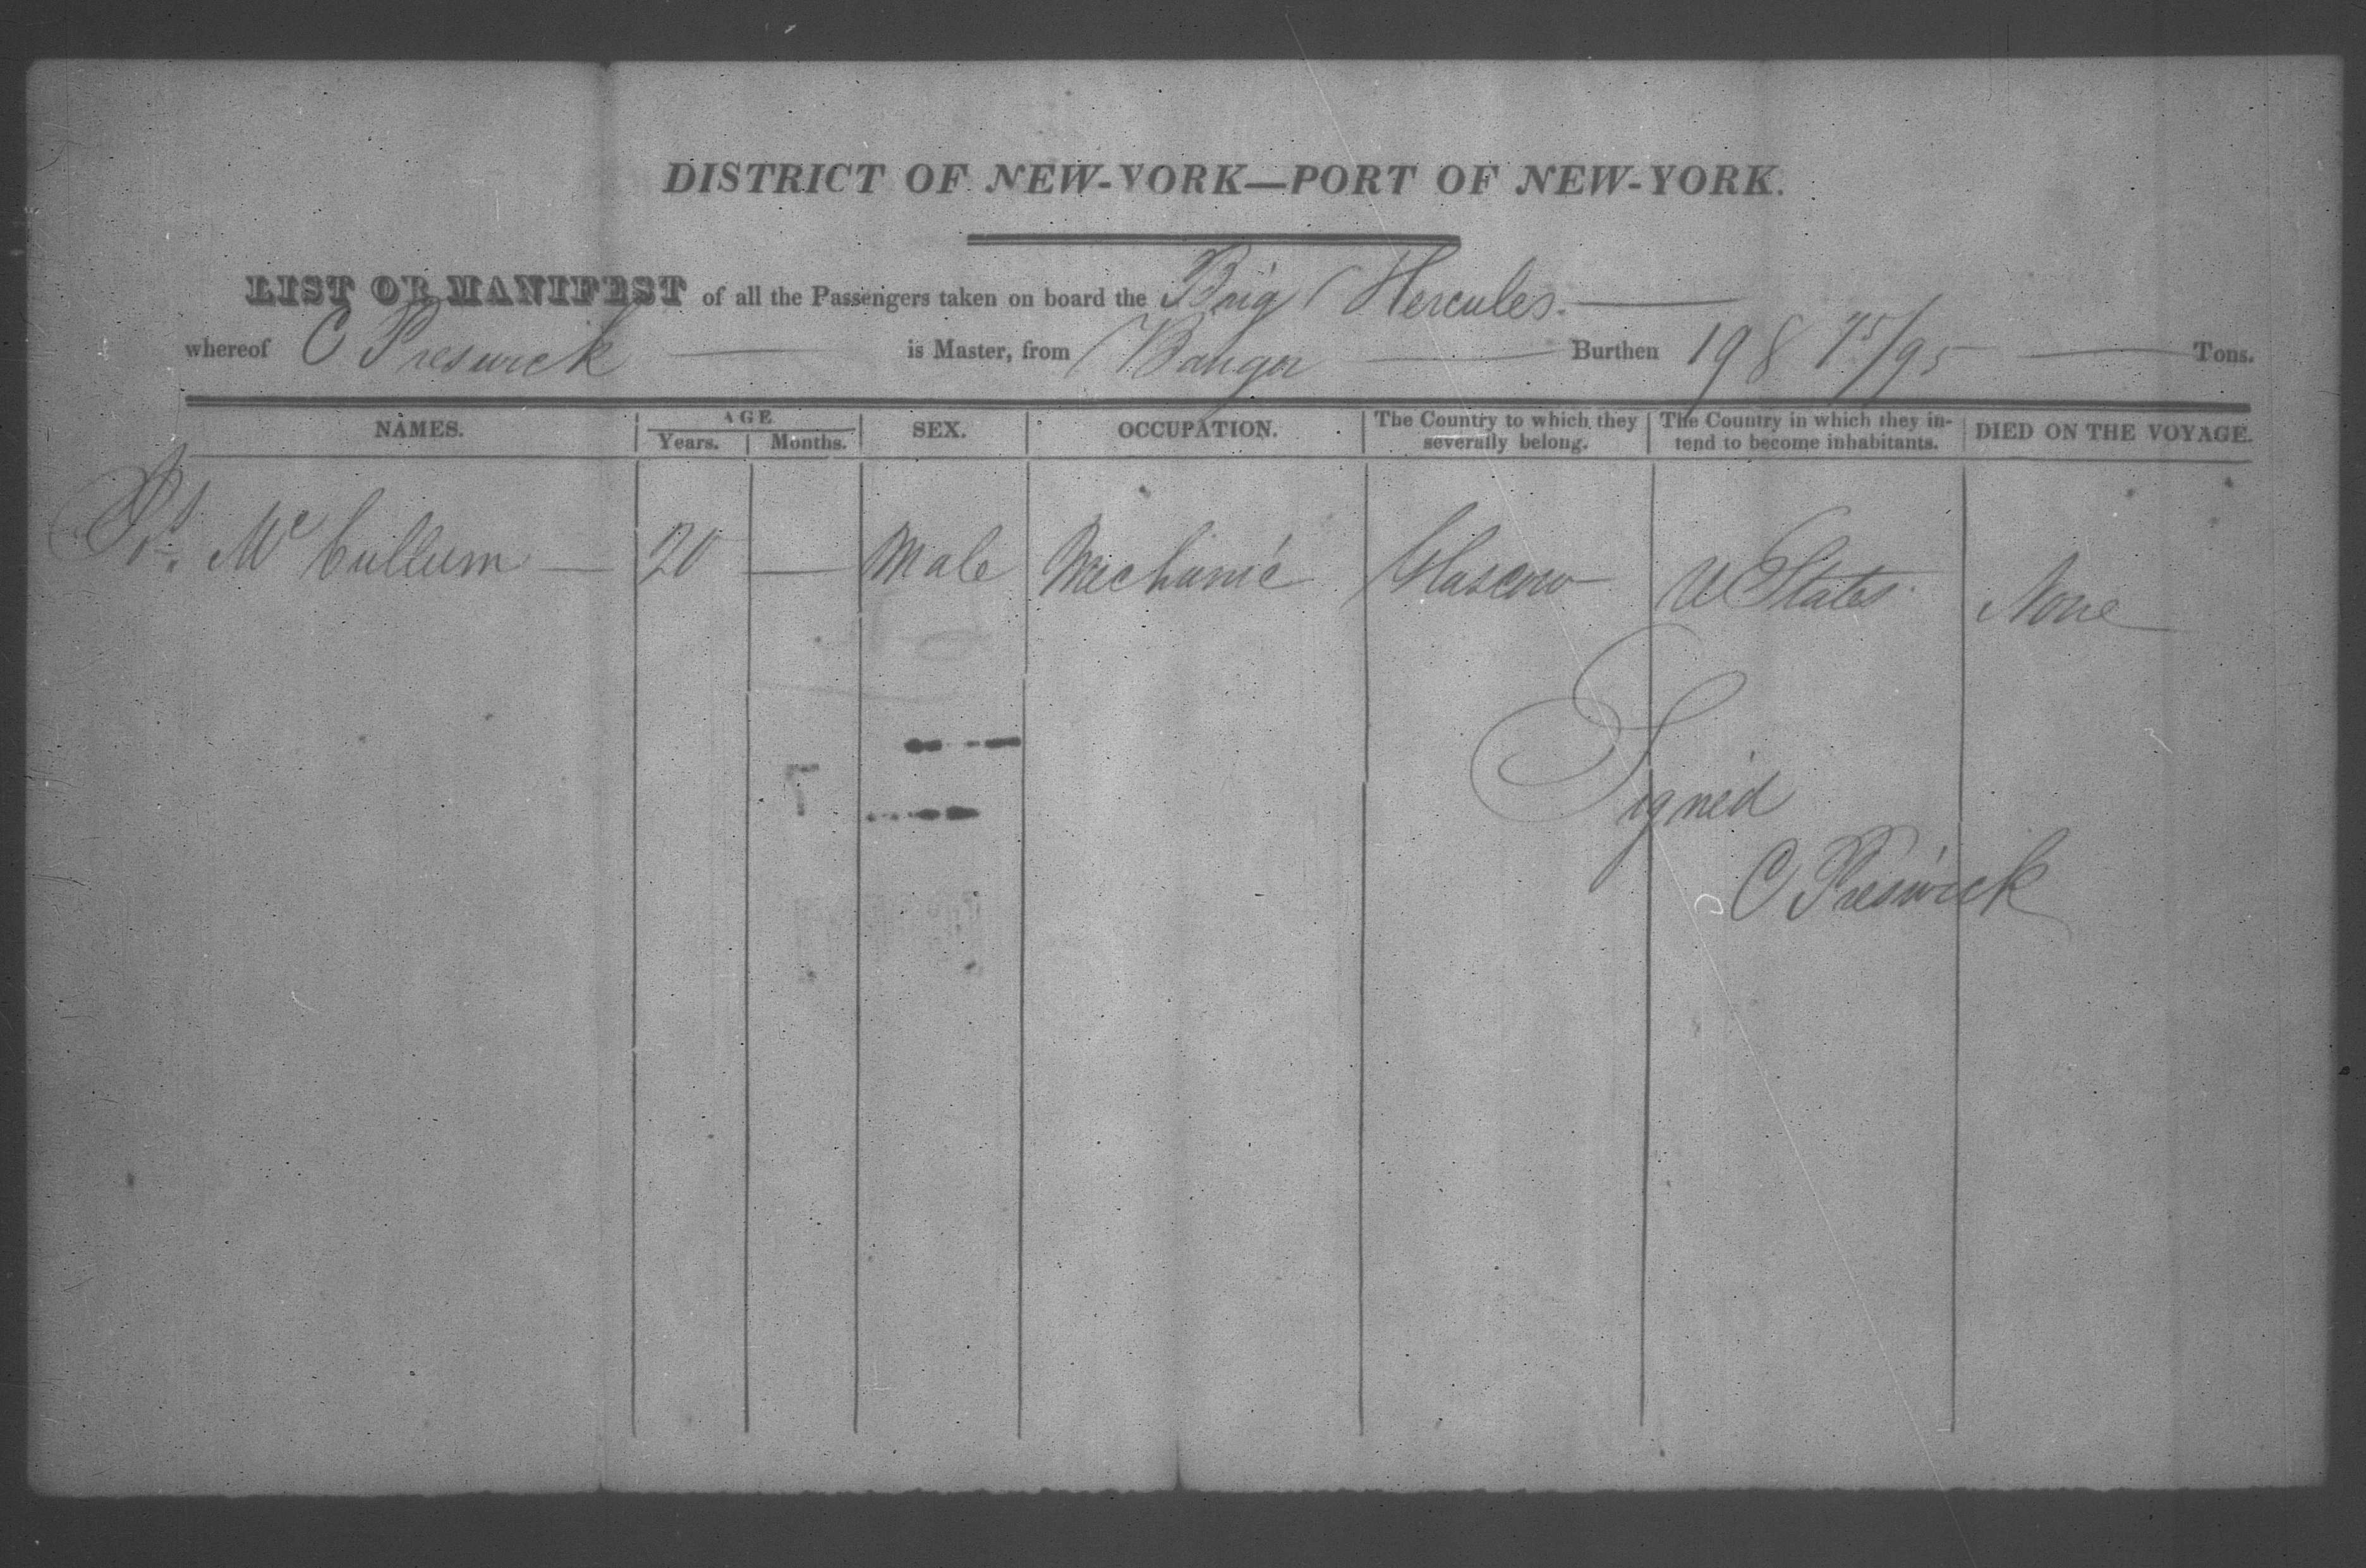 DISTRICT OF NEW-YORK—PORT OF NEW-YORK.
LIST OR MANIFEST of all the Passengers taken on board the Brig Hercules.
whereof C Preswick is Master, from Bangor Burthen 198 75/95 Tons.
NAMES. AGE Years. Months. SEX. OCCUPATION. The Country to which they severally belong. The Country in which they intend to become inhabitants. DIED ON THE VOYAGE.
Mc Cullum — 20 — Male Mechanic Glascow U States. None
Signed
C Preswick